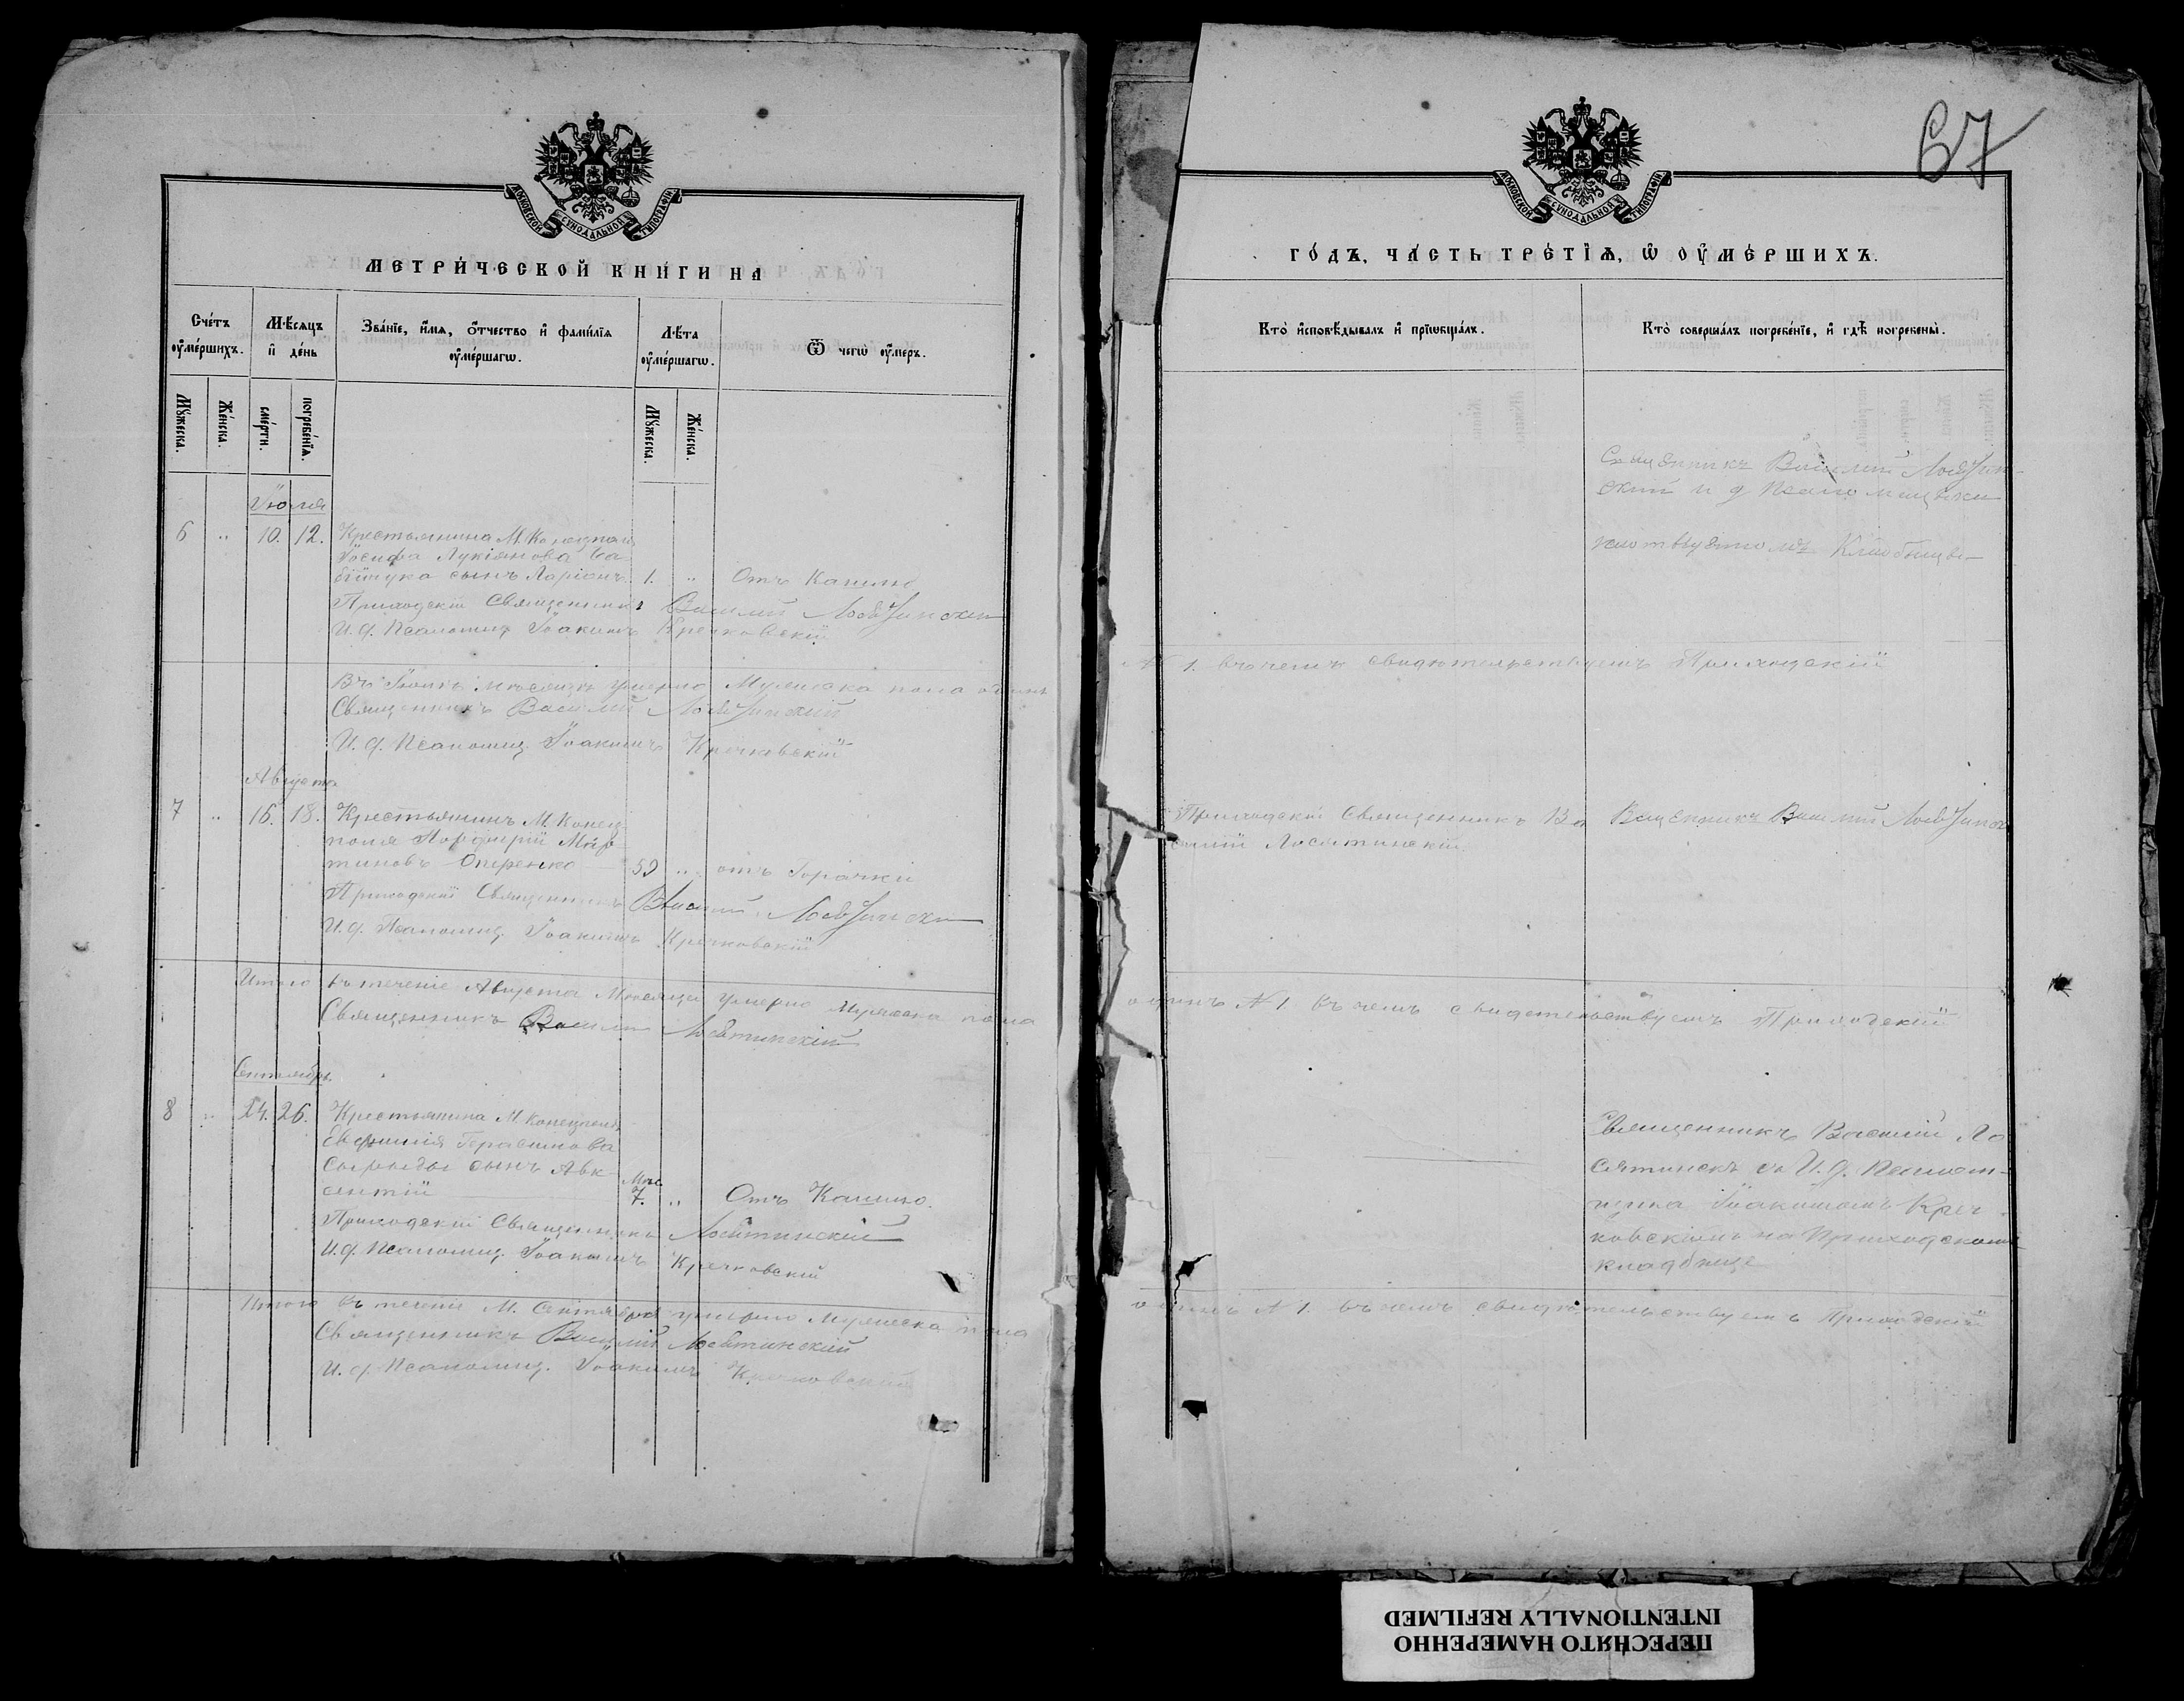 МОСКОВСКОЙ СУНОДАЛЬНОЙ ТУПОГРАФІИ
МЕТРИ́ЧЕСКОЙ КНИ́ГИ НА
Сче́тъ ᲂу҆ме́ршихъ.
Мѣ́сяцъ и҆ де́нь
Зва́нїе, и҆́мѧ, ѻ҆́тчество и҆ фами́лїѧ ᲂу҆ме́ршагѡ.
Лѣ́та ᲂу҆ме́ршагѡ.
Ѿ чегѡ̀ ᲂу҆́меръ.
Мꙋ́жеска.
Же́нска.
сме́рти.
погребе́нїѧ.
Мꙋ́жеска.
Же́нска.
Іюля
6 " 10. 12. Крестьянина М. Конецполя
Іосифа Лукіянова
сынъ Ларіонъ 1. " Отъ Кашлю
Приходскій Священникъ Василій
И. д. Псаломщ. Іоакимъ Кречковскій
Въ Іюлѣ мѣсяцѣ умерло Мужеска пола одинъ
Священникъ Василій
И. д. Псаломщ. Іоакимъ Кречковскій
Августа
7 " 16. 18. Крестьянинъ М. Конец
поля Порфирій Мар
тиновъ 59 " отъ Горячки
Приходскій Священникъ Василій
И. д. Псаломщ. Іоакимъ Кречковскій
Итого въ теченіе Августа Мѣсяца умерло Мужеска пола
Священникъ Василій Лосятинскій
Сентябрь
8 " 24. 26. Крестьянина М. Конецполя
Евфимія Герасимова
сынъ Авк
сентій Мѣс. 7. " Отъ Кашлю.
Приходскій Священникъ Лосятинскій
И. д. Псаломщ. Іоакимъ Кречковскій
Итого въ теченіе М. Сентября умерло Мужеска пола
Священникъ Василій Лосятинскій
И. д. Псаломщ. Іоакимъ Кречковскій
67
МОСКОВСКОЙ СУНОДАЛЬНОЙ ТУПОГРАФІИ
ГО́ДЪ, ЧА́СТЬ ТРЕ́ТЇѦ, Ѡ҆ ОУ҆МЕ́РШИХЪ.
Кто̀ и҆сповѣ́дывалъ и҆ прїѡбща́лъ.
Кто̀ соверша́лъ погребе́нїе, и҆ гдѣ̀ погребены̀.
Священникъ Василій
№ 1. въ чемъ свидѣтельствуемъ Приходскій
Приходскій Священникъ Ва
силій Лосятинскій
Василій
одинъ № 1 въ чемъ свидетельствуемъ Приходскій
Священникъ Василій Ло
сятинскъ съ И. д. Псалом
щика Іоакимомъ Креч
ковскимъ на Приходскомъ
кладбище
одинъ № 1. въ чемъ свидѣтельствуемъ Приходскій
ПЕРЕСНЯТО НАМЕРЕННО
INTENTIONALLY REFILMED